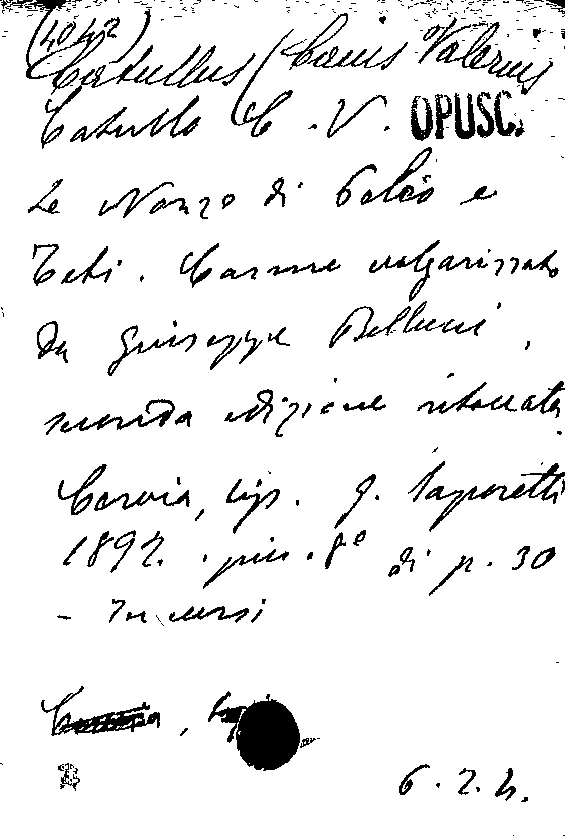 (4042)
Catullus (Caius Valerius
Catullo C. V. OPUSC.
Le Nozze di Peleo e
Teti. Carme volgarizzato
da Giuseppe Bellucci,
seconda edizione ritoccata
Cervia, tip. G. Saporetti
1892. picc. 8º di p. 30
- In versi
6.2.4.